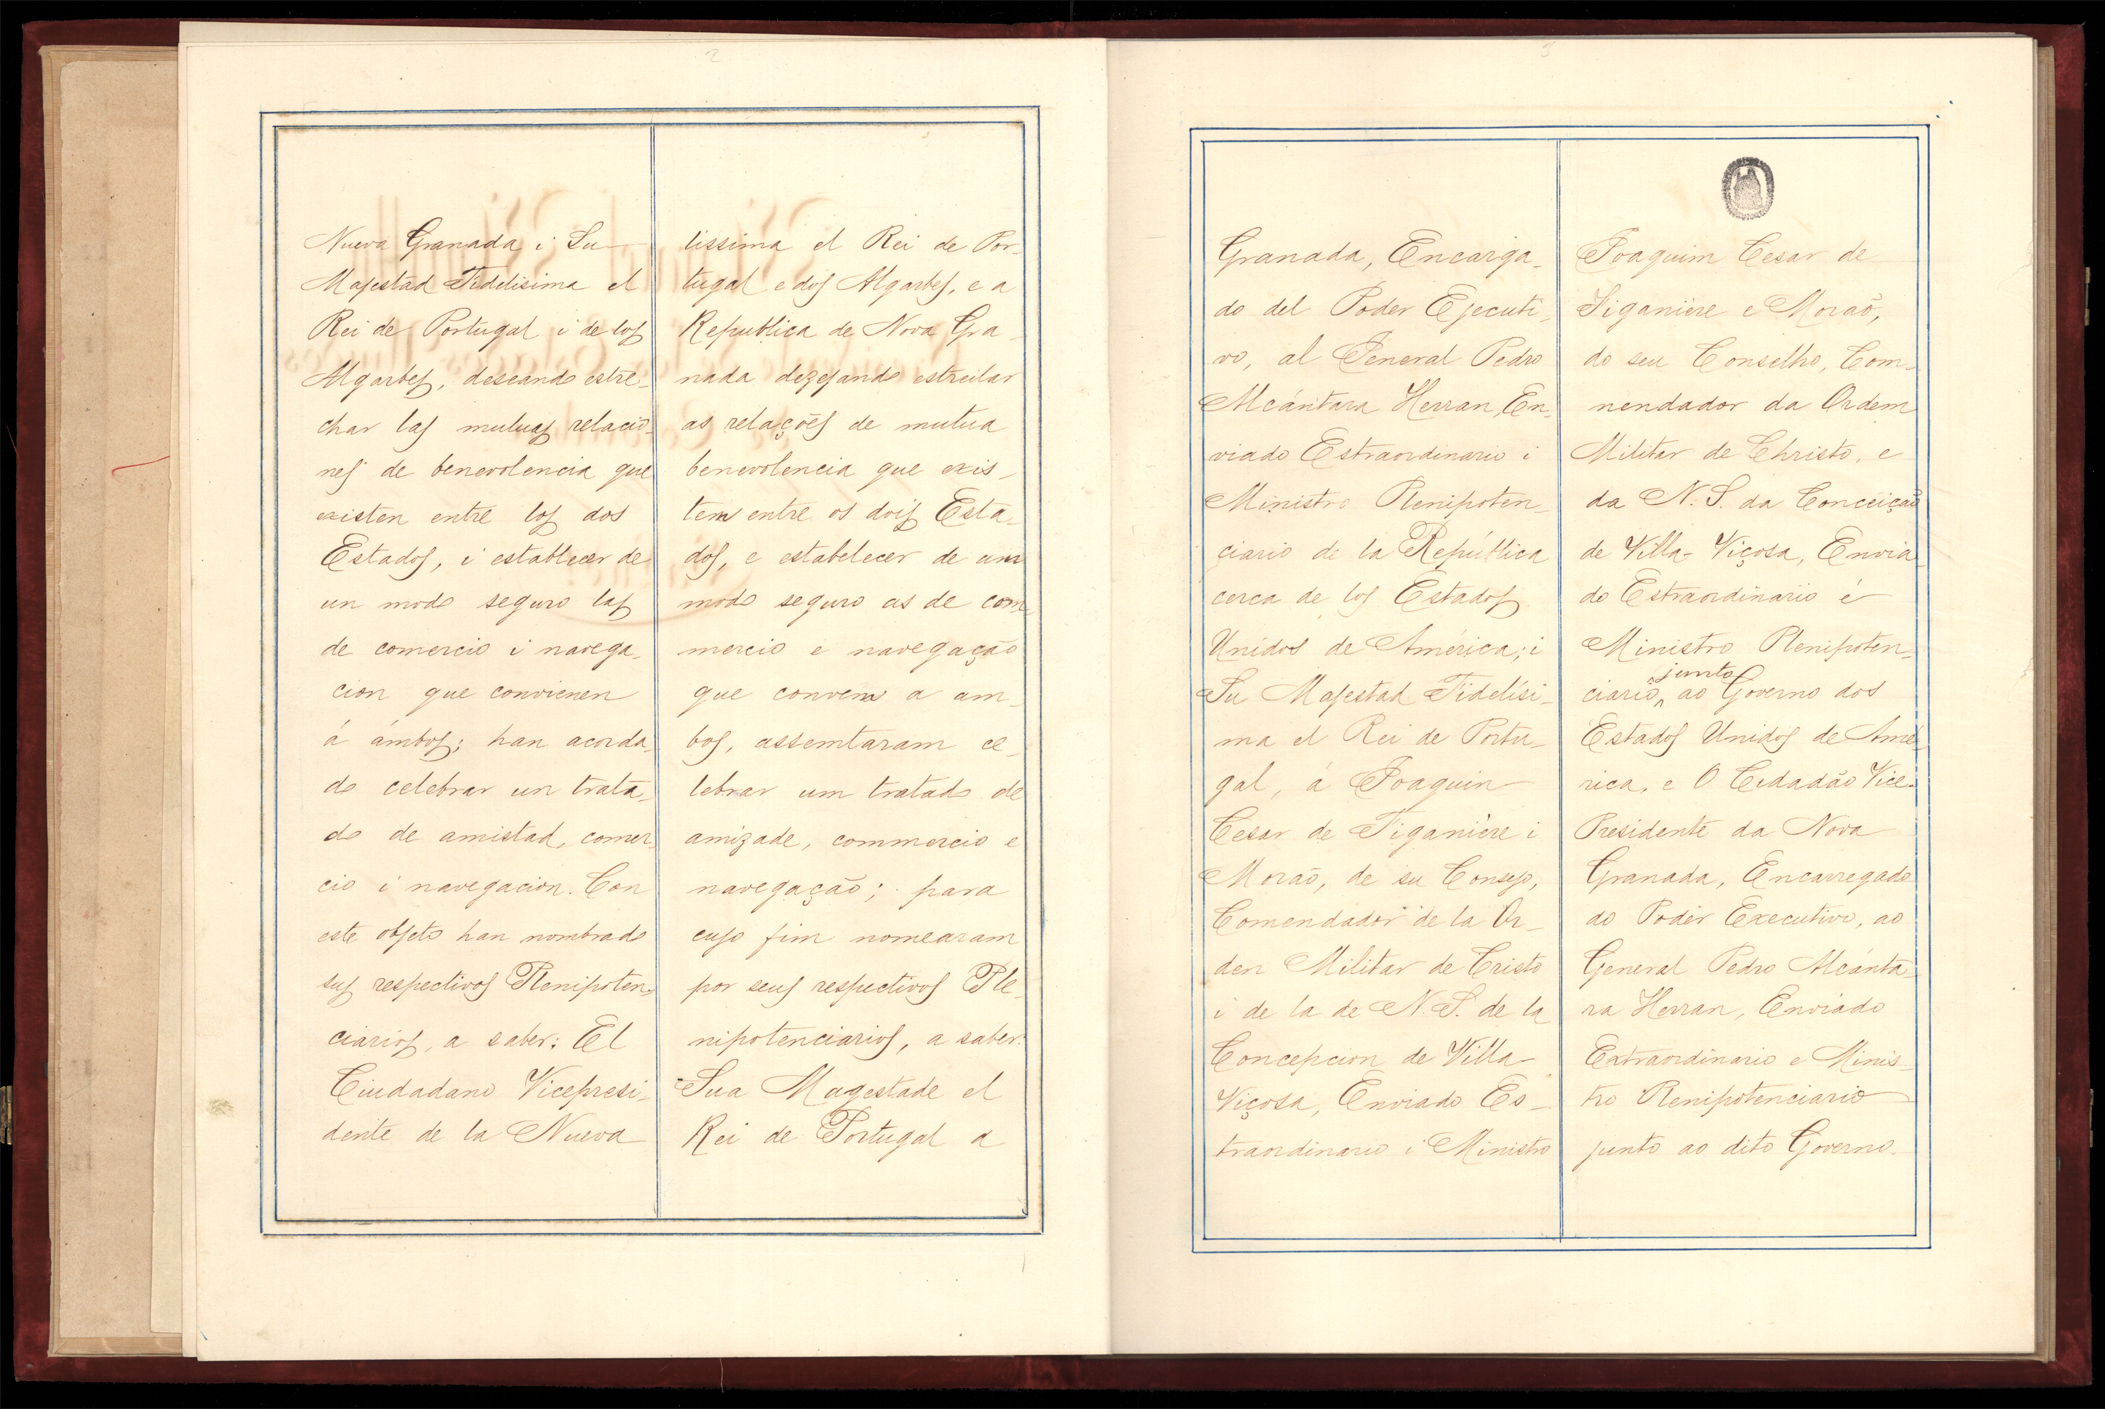 2
Nueva Granada i Su
Majestad Fidelisima el
Rei de Portugal i de los
Algarbes, deseando estre-
char las mutuas relacio-
nes de benevolencia que
existen entre los dos
Estados, i establecer de
un modo seguro las
de comercio i navega-
cion que convienen
á ámbos; han acorda-
do celebrar un trata-
do de amistad, comer-
cio i navegacion. Con
este objeto han nombrado
sus respectivos Plenipoten-
ciarios, a saber: El
Ciudadano Vicepresi-
dente de la Nueva
lissima el Rei de Por-
tugal e dos Algarbes, e a
Republica de Nova Gra-
nada dezejando estreitar
as relações de mutua
benevolencia que exis-
tem entre os dois Esta-
dos, e estabelecer de um
modo seguro as de com-
mercio e navegação
que convem a am-
bos, assemtaram ce-
lebrar um tratado de
amizade, commercio e
navegação; para
cujo fim nomearam
por seus respectivos Ple-
nipotenciarios, a saber:
Sua Magestade el
Rei de Portugal a
3
Granada, Encarga-
do del Poder Ejecuti-
vo, al Jeneral Pedro
Alcántara Herran, En-
viado Estraordinario i
Ministro Plenipoten-
ciario de la República
cerca de los Estados
Unidos de América; i
Su Majestad Fidelísi-
ma el Rei de Portu-
gal, á Joaquin
Cesar de Figanière i
Moraõ, de su Consejo,
Comendador de la Or-
den Militar de Cristo
i de la de N. S. de la
Concepcion de Villa-
Viçosa, Enviado Es-
traordinario i Ministro
Joaquim Cesar de
Figanière e Moraõ,
do seu Conselho, Com-
nendador da Ordem
Militar de Christo, e
da N. S. da Conceiçaõ
de Villa-Viçosa, Envia-
do Estraordinario é
Ministro Plenipoten-
ciario, junto ao Governo dos
Estados Unidos de Amé-
rica, e O Cidadão Vice-
Presidente da Nova
Granada, Encarregado
do Poder Executivo, ao
General Pedro Alcánta-
ra Herran, Enviado
Extraordinario e Minis-
tro Plenipotenciario
junto ao dito Governo.